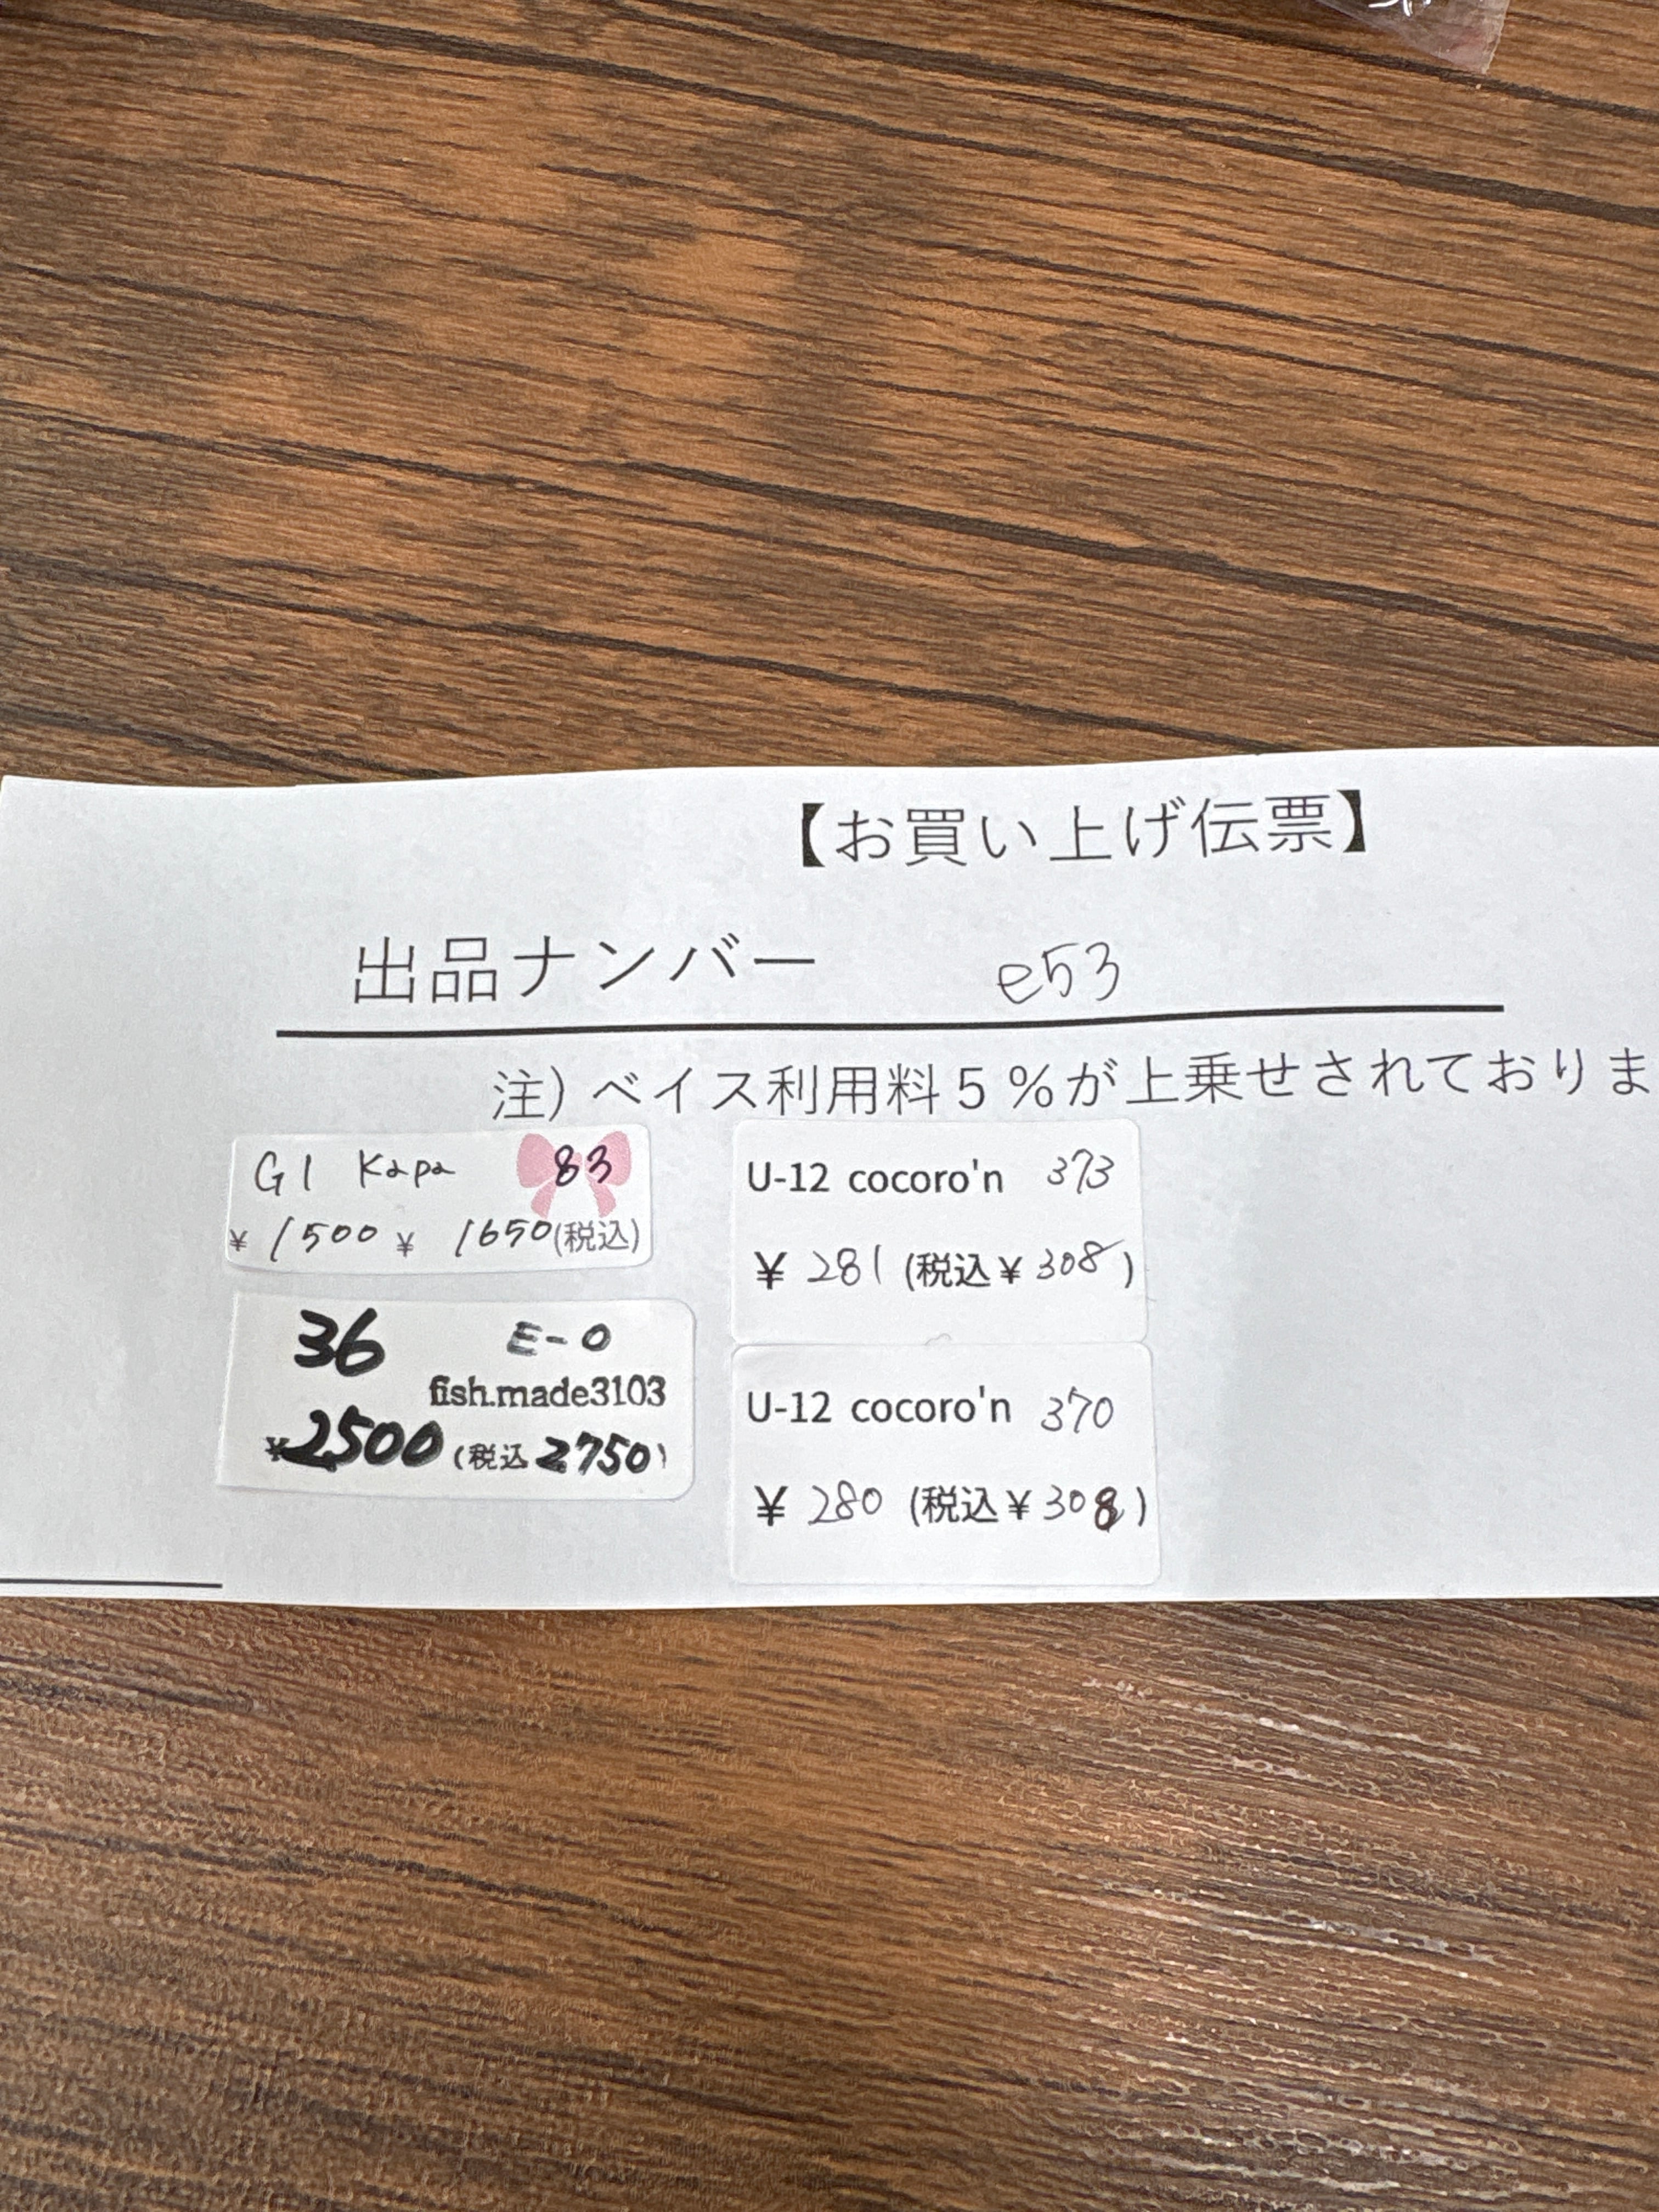 【お買い上げ伝票】
出品ナンバー e53
注）ベイス利用料５％が上乗せされておりま
G1 Kapa 83
¥ 1500 ¥ 1650(税込)
36 E-0
fish.made3103
¥2500 (税込 2750)
U-12 cocoro'n 373
¥ 281 (税込¥308)
U-12 cocoro'n 370
¥ 280 (税込¥308)